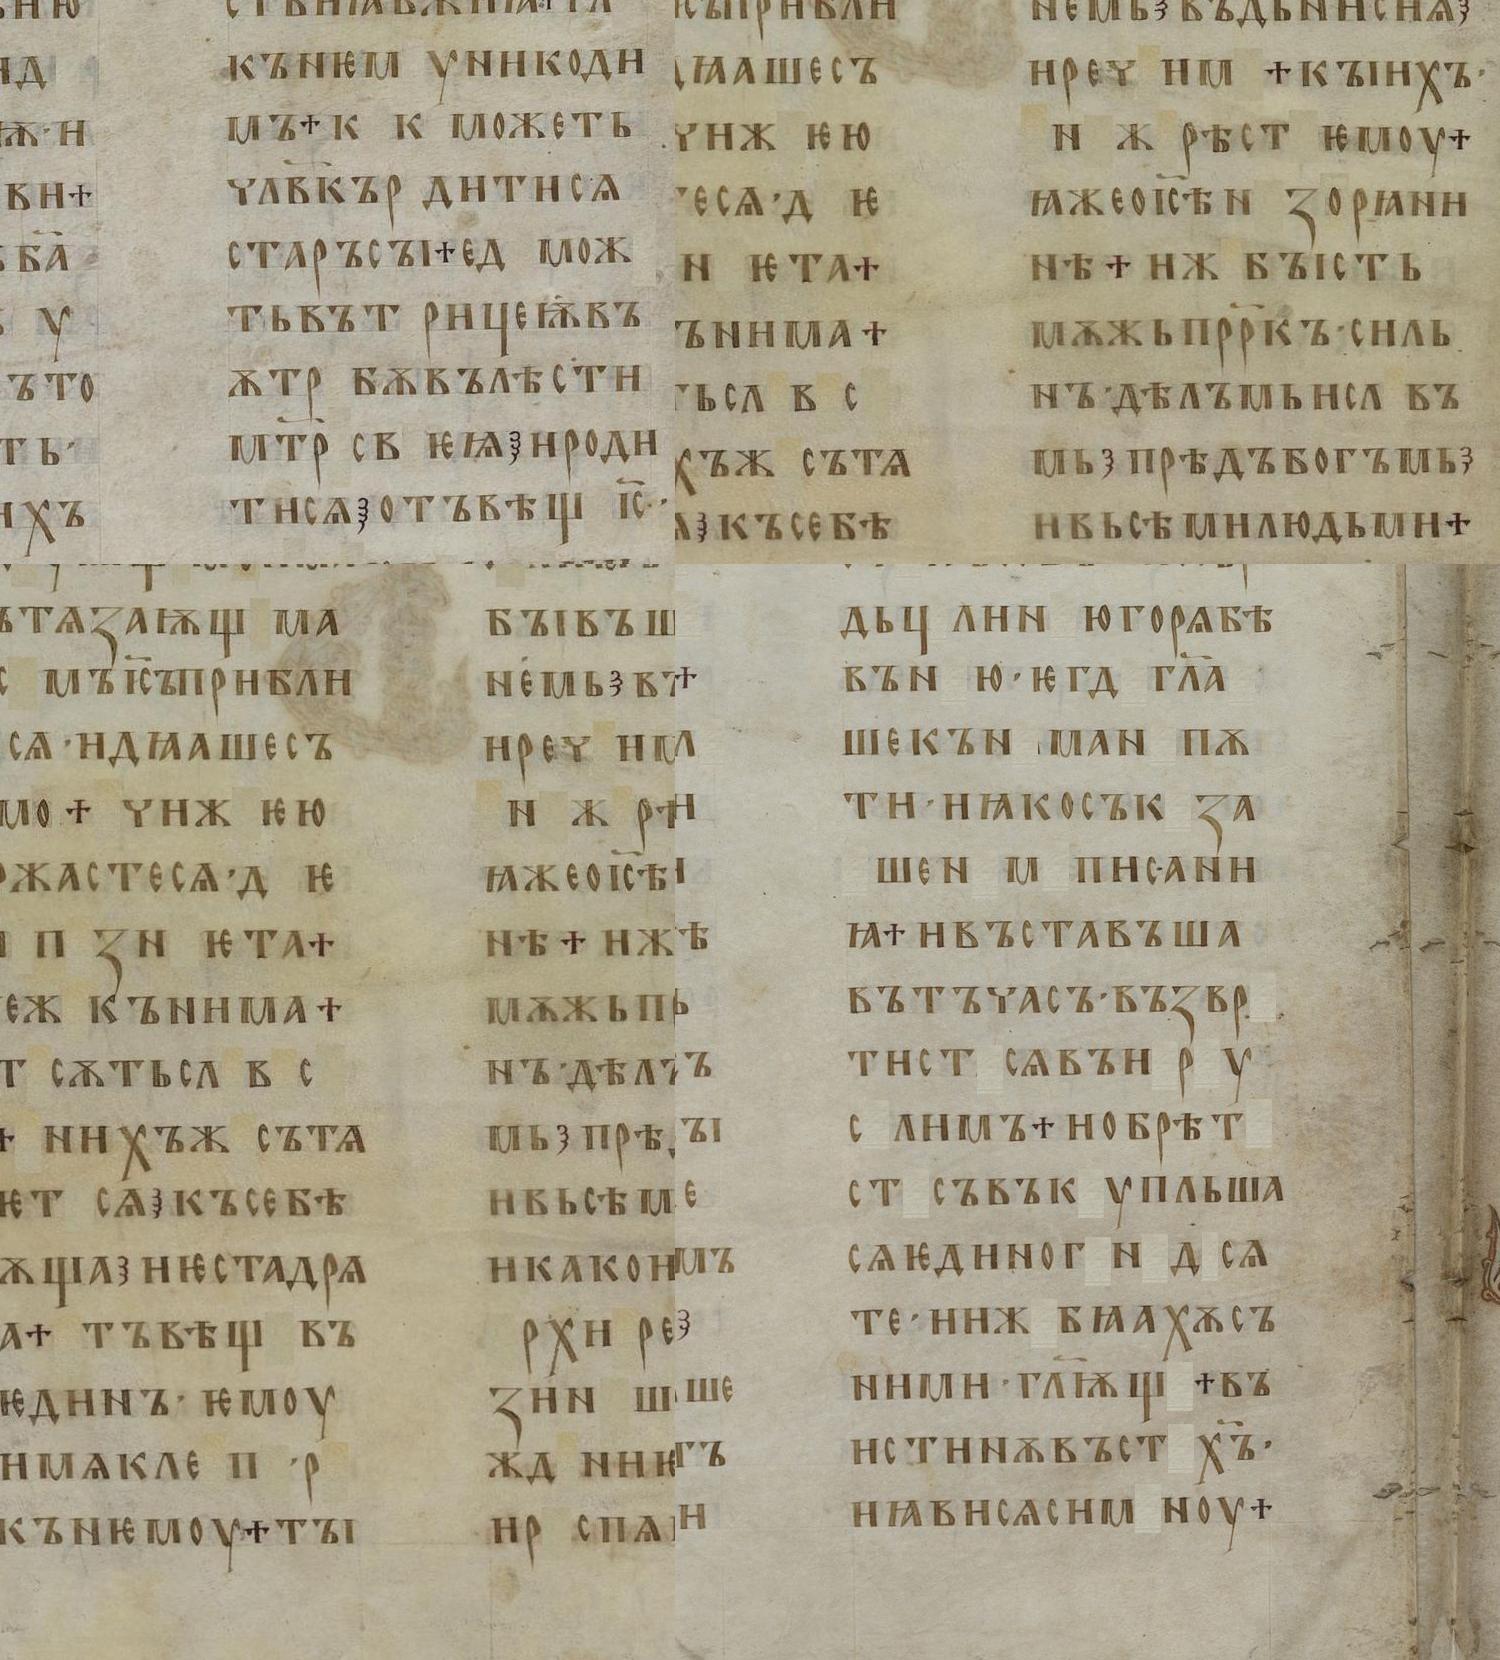 кънѥм уникоди
мъ+к к можеть
члв҃кър дитисѧ
старъсъі+ед мож
тьвът рицеѭвъ
ѫтр бѫвълѣсти
мт҃р св ѥꙗꙁнроди
тисѧꙁотъвѣщ іс҃·
ꙗашесъ
чиж ѥю
есѧ·д ѥ
н ѥта+
ъннма+
ьсл в с
ъж сътѧ
ꙁкъсебѣ
нреч нм +къінхъ·
н ж рѣст ѥмоу+
ꙗжеоіс҃ѣн зорꙗнн
нѣ+нж бъість
мѫжьпрр҃къ·снль
нъ·дѣлъмьнсл въ
мьꙁпрѣдъбогъмьꙁ
нвьсѣмнлюдьмн+
ътѧзаѭщ ма
с мъіс҃ъприбли
сѧ·ндꙗашесъ
мо+ чнж ѥю
ржастесѧ·д ѥ
п зн ѥта+
еж къннма+
т сѫтьсл в с
+ ннхъж сътѧ
ѥт сѧꙁкъсебѣ
ѫщаꙁнѥстадрѧ
а+ тъвѣщ въ
ѥдннъ·ѥмоу
нмѧкле п ·р
кънѥмоу+тъі
бъівъш
немьꙁв
нреч нм
н ж р
ꙗжеоіс҃ѣ
нѣ+нж
мѫжьп
нъ·дѣл
мьꙁпрѣ
нвьсѣм
нкакон
рхн ре
знн ш
жд нн
нр спѧ
дьц лнн югорѧбѣ
вън ю·ѥгд гл҃а
шекън ман пѫ
тн·нꙗкосък за
шен м псанн
ꙗ+нвъставъша
вътъчасъ·възвр
тнст сѧвън р у
с лнмъ+нобрѣт
ст съвък упльша
сѧѥднног н д сѧ
те·ннж бꙗахѫсъ
ннмн·гл҃ѭщ +въ
нстннѫвъст х҃ъ·
нꙗвнсѧснм ноу+